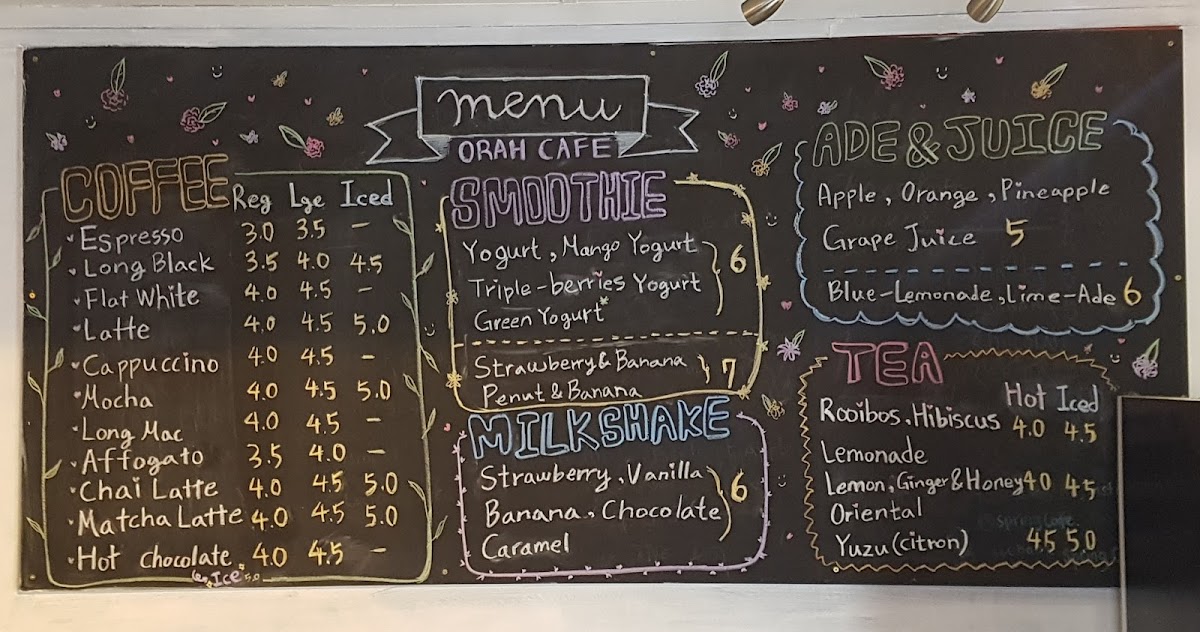 menu
ORAH CAFE
COFFEE
Reg Lge Iced
Espresso 3.0 3.5 –
Long Black 3.5 4.0 4.5
Flat White 4.0 4.5 –
Latte 4.0 4.5 5.0
Cappuccino 4.0 4.5 –
Mocha 4.0 4.5 5.0
Long Mac 4.0 4.5 –
Affogato 3.5 4.0 –
Chai Latte 4.0 4.5 5.0
Matcha Latte 4.0 4.5 5.0
Hot chocolate 4.0 4.5 –
Ice 5.0
SMOOTHIE
Yogurt, Mango Yogurt
Triple-berries Yogurt 6
Green Yogurt*
Strawberry & Banana
Penut & Banana 7
MILKSHAKE
Strawberry, Vanilla
Banana, Chocolate 6
Caramel
ADE & JUICE
Apple, Orange, Pineapple
Grape Juice 5
Blue-Lemonade, Lime-Ade 6
TEA
Hot Iced
Rooibos, Hibiscus 4.0 4.5
Lemonade
Lemon, Ginger & Honey 4.0 4.5
Oriental
Yuzu (citron) 4.5 5.0